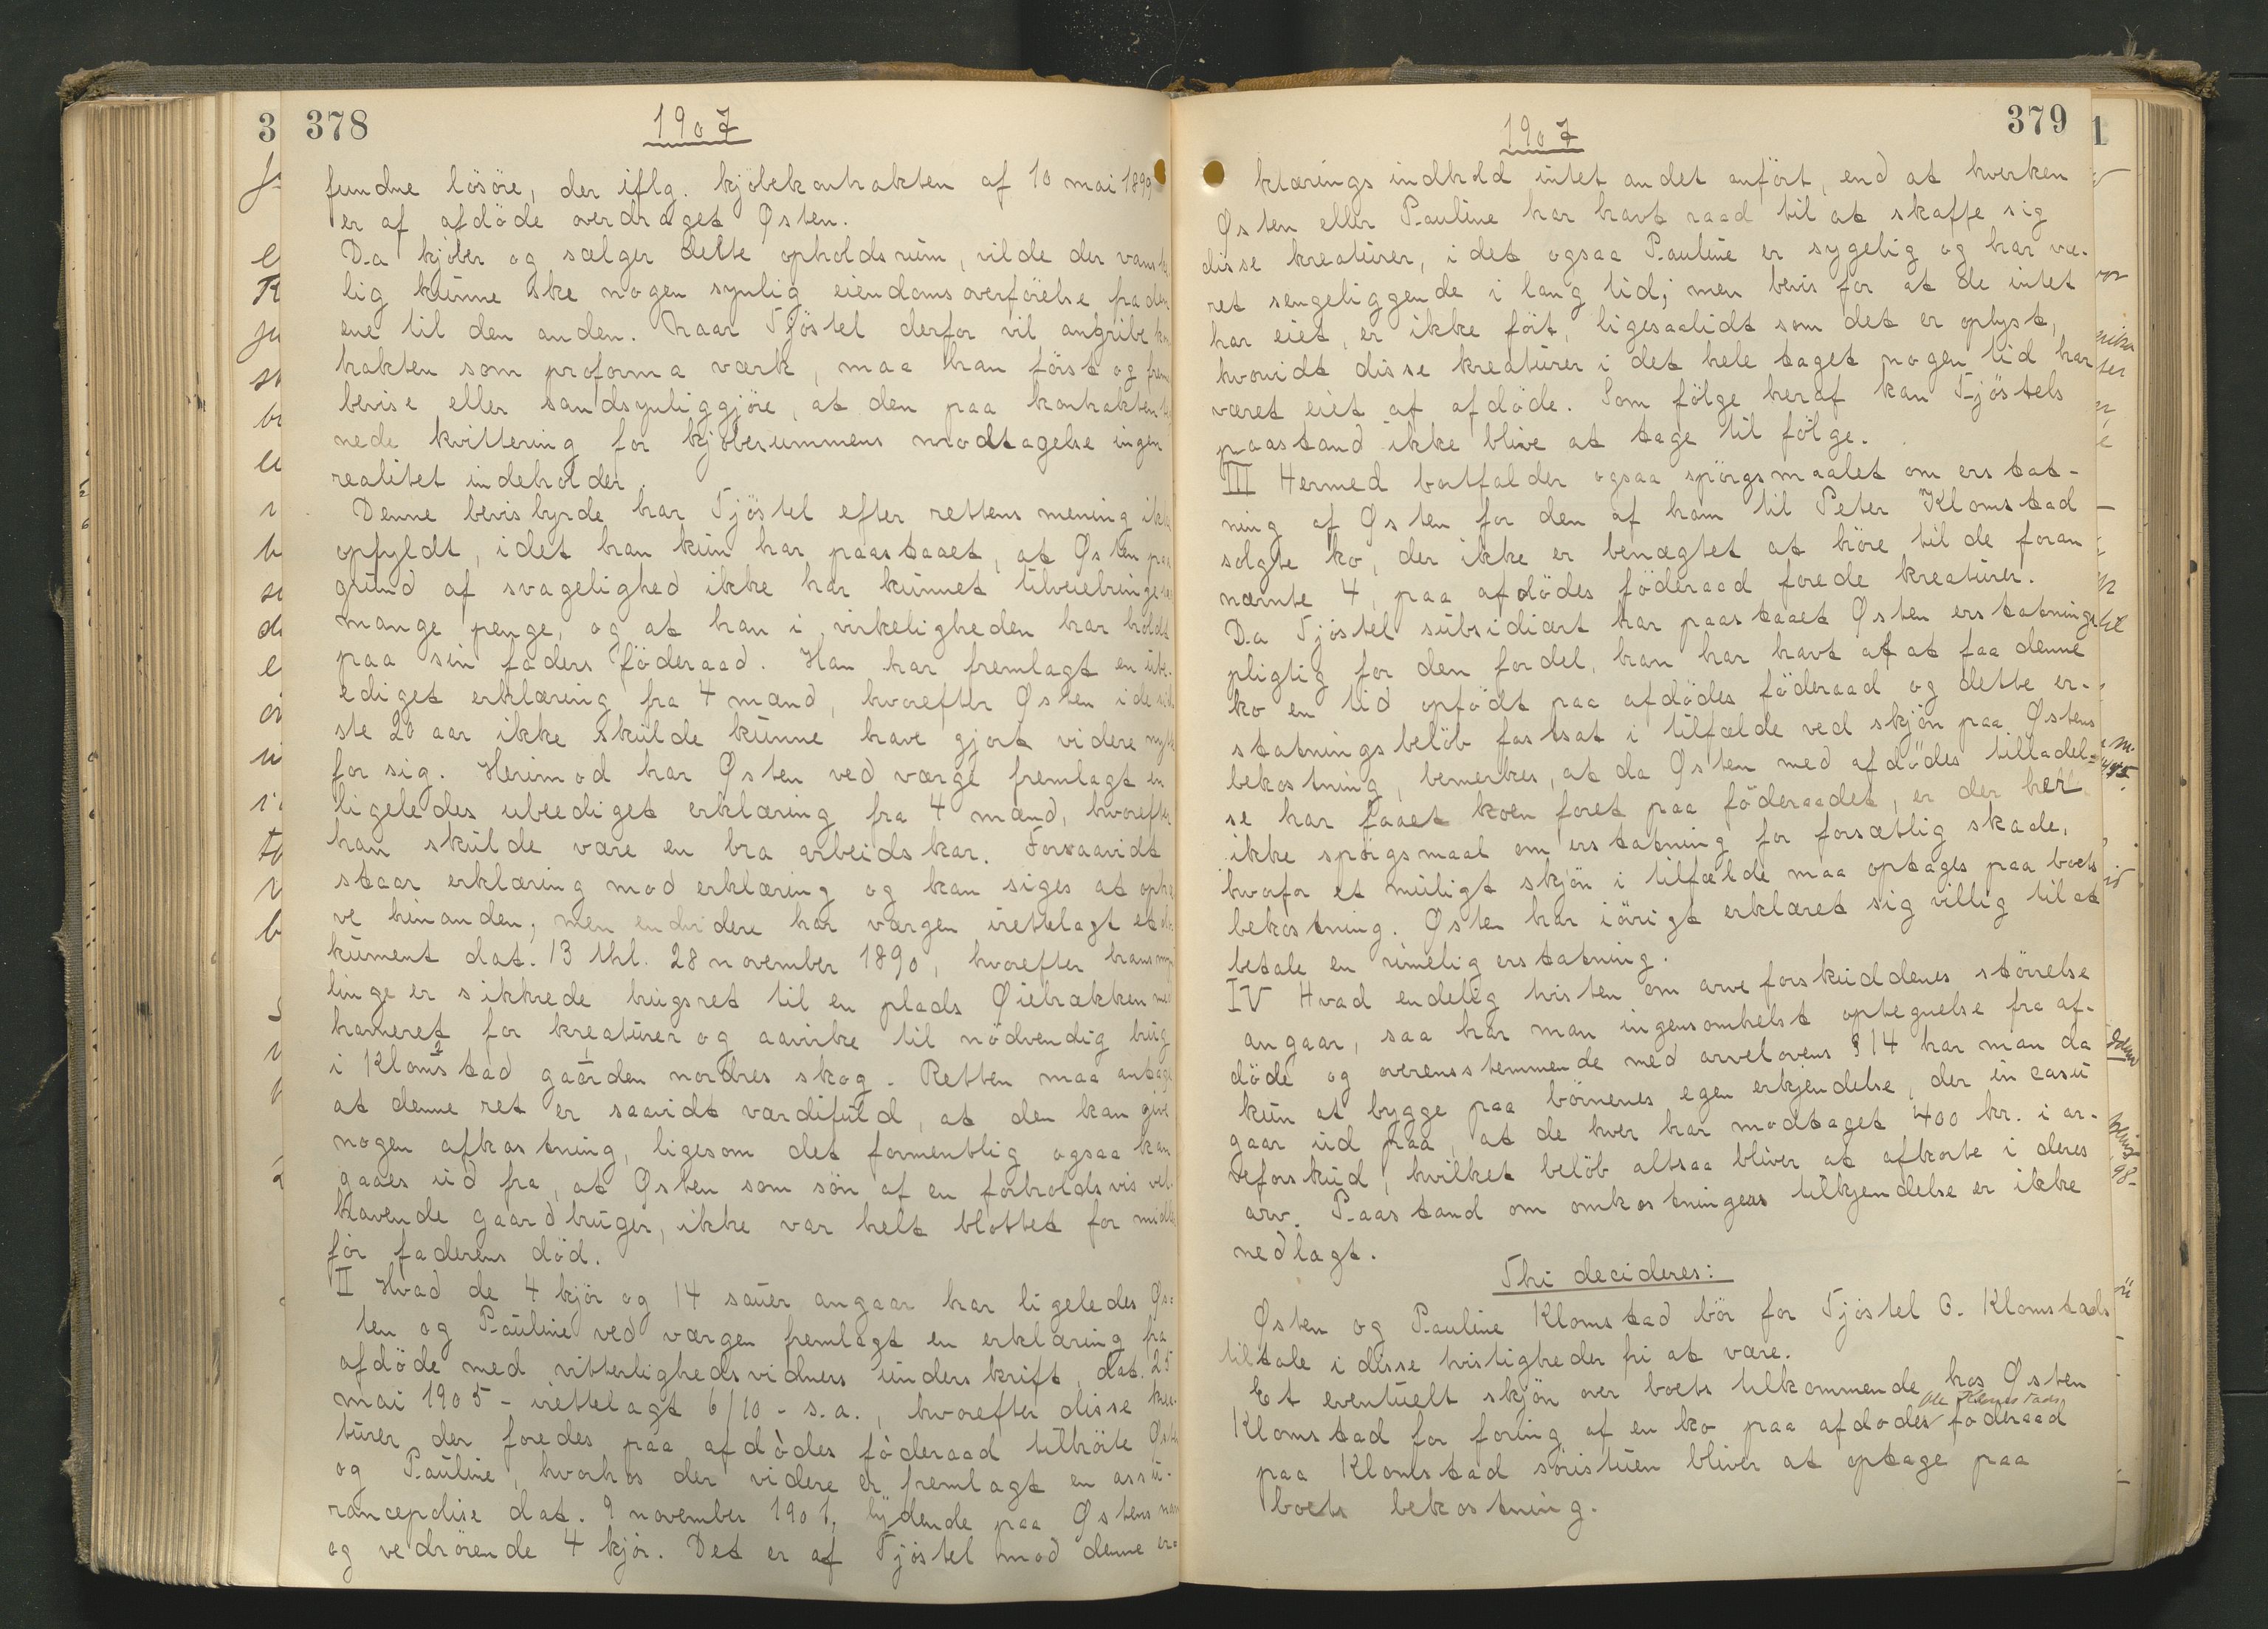 378
1907
fundne lösöre, der iflg. kjöbekontrakten af 10 mai 1899
er af afdöde overdraget Østen.
Da kjöber og sælger delte opholdsrum, vilde der vanske
lig kunne ske nogen synlig eiendomsoverförelse fra den
ene til den anden. Naar Tjöstel derfor vil angribe kon
trakten som proforma værk, maa han först og frem
bevise eller sandsynliggjöre, at den paa kontrakten
nede kvittering for kjöbesummens modtagelse ingen
realitet indeholder.
Denne bevisbyrde har Tjöstel efter rettens mening ikke
opfyldt, idet han kun har paastaaet, at Østen paa
grund af svagelighed ikke har kunnet tilveiebringe saa
mange penge, og at han i virkeligheden har holdt
paa sin faders föderaad. Han har fremlagt en ube-
ediget erklæring fra 4 mænd, hvorefter Østen i de sid
ste 20 aar ikke skulde kunne have gjort videre nytte
for sig. Herimod har Østen ved værge fremlagt en
ligeledes ubeediget erklæring fra 4 mænd, hvorefter
han skulde være en bra arbeidskar. Forsaavidt
staar erklæring mod erklæring og kan siges at ophæ
ve hinanden; men endvidere har værgen irettelagt et do
kument dat. 13 thl. 28 november 1890, hvorefter hans
linge er sikkrede brugsret til en plads Øiebrækken med
havneret for kreaturer og aavirke til nödvendig brug
i Klomstad gaarden nordres skog. Retten maa antage
at denne ret er saavidt værdifuld, at den kan give
nogen afkastning, ligesom det formentlig ogsaa kan
gaaes ud fra, at Østen som sön af en forholdsvis vel-
havende gaardbruger, ikke var helt blottet for midler
för faderens död.
II Hvad de 4 kjör og 14 sauer angaar har ligeledes Øs=
ten og Pauline ved værgen fremlagt en erklæring fra
afdöde med vitterlighedsvidners underskrift, dat. 25
mai 1905 - irettelagt 6/10 - s.a., hvorefter disse krea-
turer der foredes paa afdödes föderaad tilhörte Østen
og Pauline, hvorhos der videre er fremlagt en assu-
rancepolise dat. 9 november 1901, lydende paa Østens navn
og vedrörende 4 kjör. Det er af Tjöstel mod denne er=
379
1907
klærings indhold intet andet anfört, end at hverken
Østen eller Pauline har havt raad til at skaffe sig
disse kreaturer, idet ogsaa Pauline er sygelig og har væ-
ret sengeliggende i lang tid; men bevis for at de intet
har eiet, er ikke fört, ligesaalidt som det er oplyst,
hvorvidt disse kreaturer i det hele taget nogen tid har
været eiet af afdöde. Som fölge heraf kan Tjöstels
paastand ikke blive at tage til fölge.
III Hermed bortfalder ogsaa spörgsmaalet om erstat-
ning af Østen for den af ham til Peter Klomstad
solgte ko, der ikke er benægtet at höre til de foran
nævnte 4, paa afdödes föderaad forede kreaturer.
Da Tjöstel subsidiært har paastaaet Østen erstatnings
pligtig for den fordel, han har havt af at faa denne
ko en tid opfödt paa afdödes föderaad og dette er-
statningsbelöb fastsat i tilfælde ved skjön paa Østens
bekostning, bemerkes, at da Østen med afdödes tilladel=
se har faaet koen foret paa föderaadet, er der her
ikke spörgsmaal om erstatning for forsætlig skade,
hvorfor et muligt skjön i tilfælde maa optages paa boets
bekostning. Østen har iövrigt erklæret sig villig til at
betale en rimelig erstatning.
IV Hvad endelig tvisten om arveforskuddenes störrelse
angaar, saa har man ingensomhelst optegnelse fra af-
döde og overensstemmende med arvelovens § 14 har man da
kun at bygge paa börnenes egen erkjendelse, der in casu
gaar ud paa, at de hver har modtaget 400 kr. i ar-
veforskud, hvilket belöb altsaa bliver at afkorte i deres
arv. Paastand om omkostningers tilkjendelse er ikke
nedlagt.
Thi decideres:
Østen og Pauline Klomstad bör for Tjöstel O. Klomstads
tiltale i disse tvistigheder fri at være.
Et eventuelt skjön over boets tilkommende hos Østen
Ole Klomstads
Klomstad for foring af en ko paa afdödes föderaad
paa Klomstad söristuen bliver at optage paa
boets bekostning.